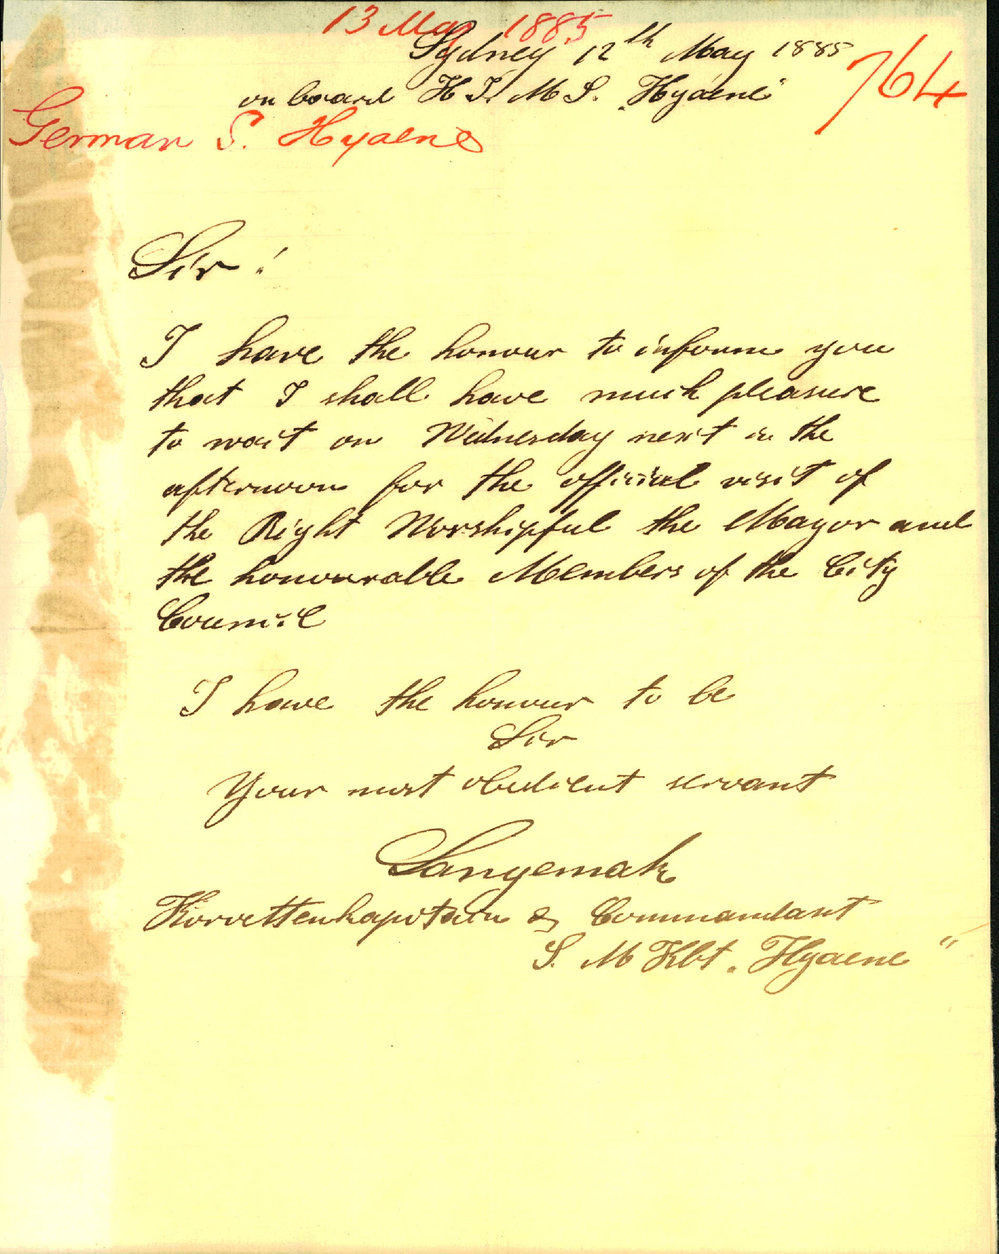 13 May 1885
Sydney 12th May 1885
764
on board H. I. M. S. „Hyaene"
German S. Hyaene
Sir!
I have the honour to inform you
that I shall have much pleasure
to wait on Wednesday next in the
afternoon for the official visit of
the Right Worshipful the Mayor and
the honourable Members of the City
Council
I have the honour to be
Sir
Your most obedient servant
Langemak
Korvettenkapitain & Commandant
S. M Kbt. „Hyaene"